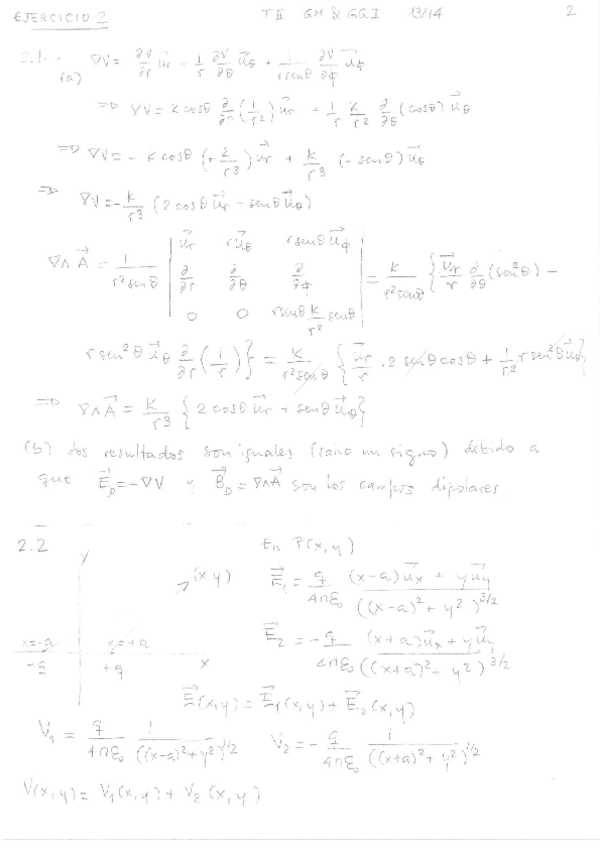 EJERCICIO 2 TII GM & GQI 13/14 2
2.1.
(a) ∇V = ∂V/∂r u⃗r + 1/r ∂V/∂θ u⃗θ + 1/(r senθ) ∂V/∂ϕ u⃗ϕ
⇒ ∇V = K cosθ ∂/∂r (1/r²) u⃗r + 1/r K/r² ∂/∂θ (cosθ) u⃗θ
⇒ ∇V = - K cosθ (+2/r³) u⃗r + K/r³ (-senθ) u⃗θ
⇒ ∇V = -K/r³ (2 cosθ u⃗r - senθ u⃗θ)
∇∧A⃗ = 1/(r² senθ) | u⃗r r u⃗θ r senθ u⃗ϕ |
| ∂/∂r ∂/∂θ ∂/∂ϕ | = K/(r² senθ) { u⃗r/r ∂/∂θ (sen²θ) -
| 0 0 r senθ K/r² senθ |
r sen²θ u⃗θ ∂/∂r (1/r) } = K/(r² senθ) { u⃗r/r . 2 senθ cosθ + 1/r² r sen²θ u⃗θ }
⇒ ∇∧A⃗ = K/r³ { 2 cosθ u⃗r + senθ u⃗θ }
(b) dos resultados son iguales (salvo un signo) debido a
que E⃗D = -∇V y B⃗D = ∇∧A⃗ son los campos dipolares
2.2 y En P(x,y)
(x y) E⃗1 = q/4πε0 ((x-a)u⃗x + y u⃗y)/((x-a)² + y²)^3/2
x=-a x=+a E⃗2 = -q/4πε0 ((x+a)u⃗x + y u⃗y)/((x+a)² + y²)^3/2
-q +q x
E⃗(x,y) = E⃗1(x,y) + E⃗2(x,y)
V1 = q/4πε0 1/((x-a)²+y²)^1/2 V2 = - q/4πε0 1/((x+a)²+y²)^1/2
V(x,y) = V1(x,y) + V2(x,y)